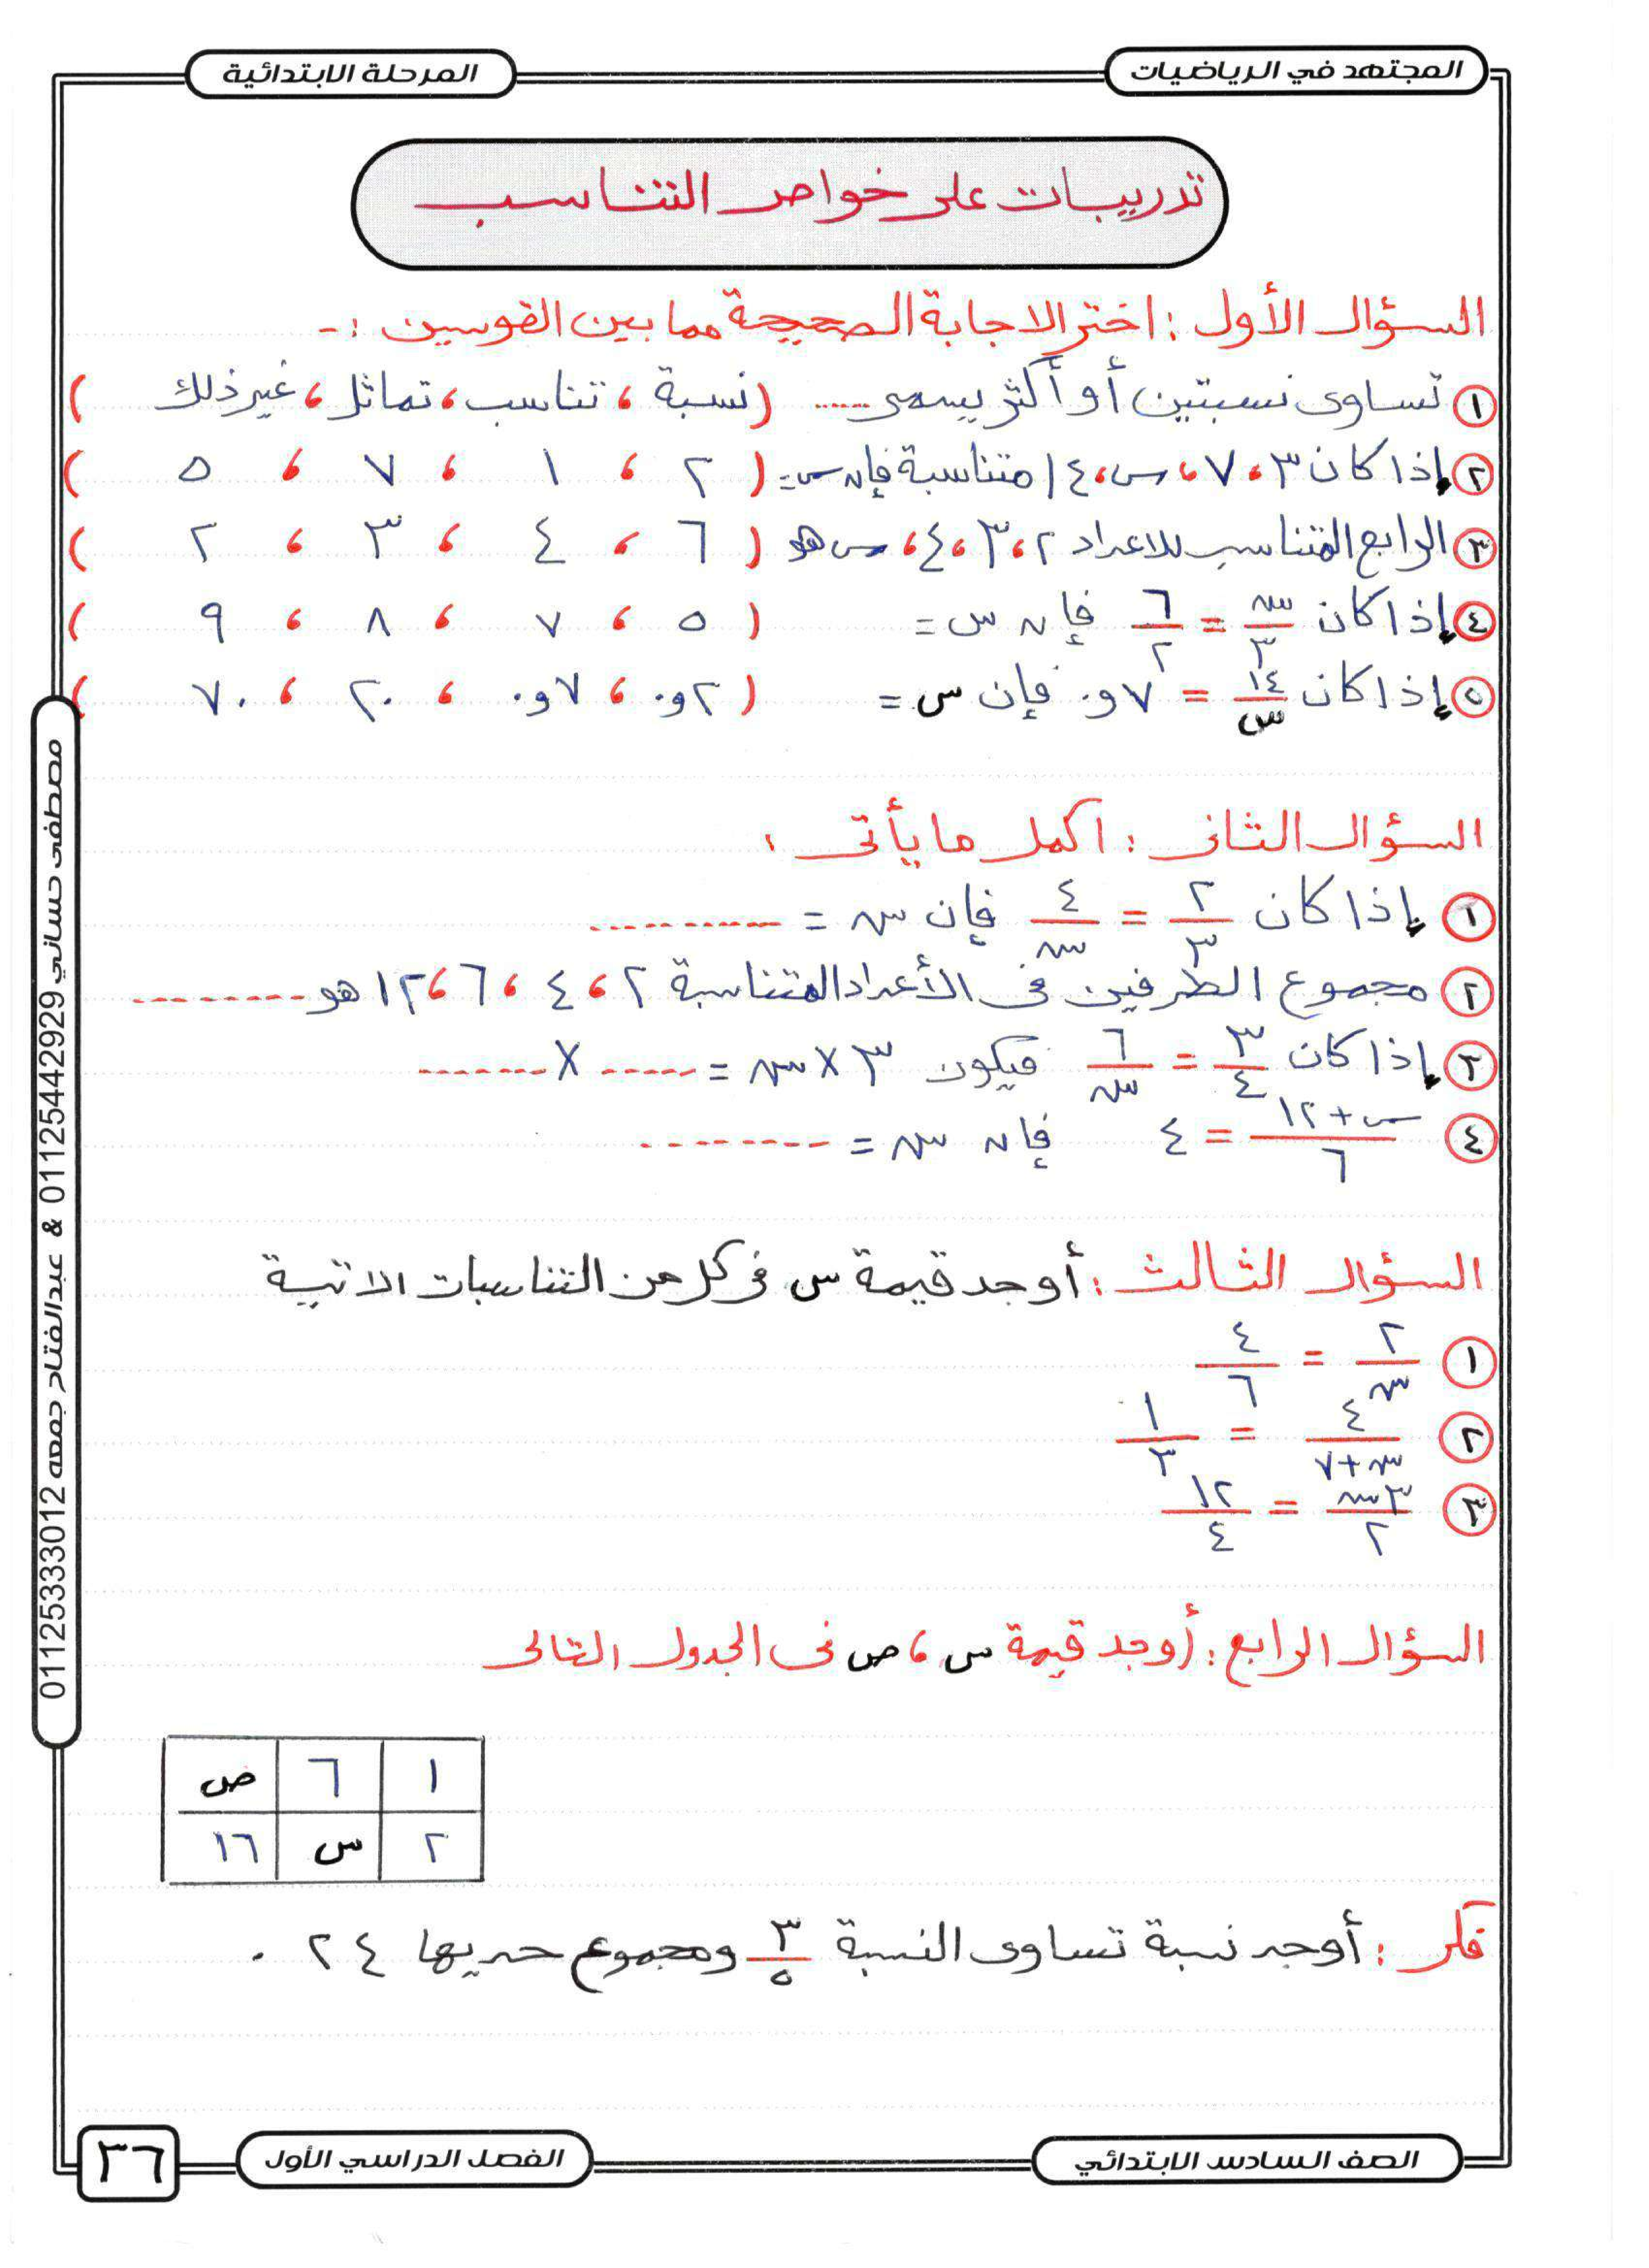 المجتهد في الرياضيات
المرحلة الابتدائية
تدريبات على خواص التناسب
السؤال الأول : اختر الاجابة الصحيحة مما بين القوسين :-
١ تساوى نسبتين أو أكثر يسمى ...... ( نسبة ، تناسب ، تماثل ، غير ذلك )
٢ إذا كان ٣ ، ٧ ، س ، ١٤ متناسبة فإن س = ( ٢ ، ١ ، ٧ ، ٥ )
٣ الرابع المتناسب للاعداد ٢ ، ٣ ، ٤ ، س هو ( ٦ ، ٤ ، ٣ ، ٢ )
٤ إذا كان س/٣ = ٦/٢ فإن س = ( ٥ ، ٧ ، ٨ ، ٩ )
٥ إذا كان ١٤/س = ٧و٠ فإن س = ( ٢و٠ ، ٧و٠ ، ٢٠ ، ٧٠ )
السؤال الثانى : اكمل ما يأتى :
١ إذا كان ٢/٣ = ٤/س فإن س = ...........
٢ مجموع الطرفين فى الأعداد المتناسبة ٢ ، ٤ ، ٦ ، ١٢ هو .........
٣ إذا كان ٣/٤ = ٦/س فيكون ٣ × س = ..... × .......
٤ س + ١٢/٦ = ٤ فإن س = .........
السؤال الثالث : أوجد قيمة س فى كل من التناسبات الاتية
١ ٢/س = ٤/٦
٢ ٤/س + ٧ = ١/٣
٣ ٣س/٢ = ١٢/٤
السؤال الرابع : أوجد قيمة س ، ص فى الجدول التالى
١ ٦ ص
٢ س ١٦
فكر : أوجد نسبة تساوى النسبة ٣/٥ ومجموع حديها ٢٤ .
الصف السادس الابتدائي
الفصل الدراسي الأول
٣٦
مصطفى حساني 01125442929 & عبدالفتاح جمعه 01125333012